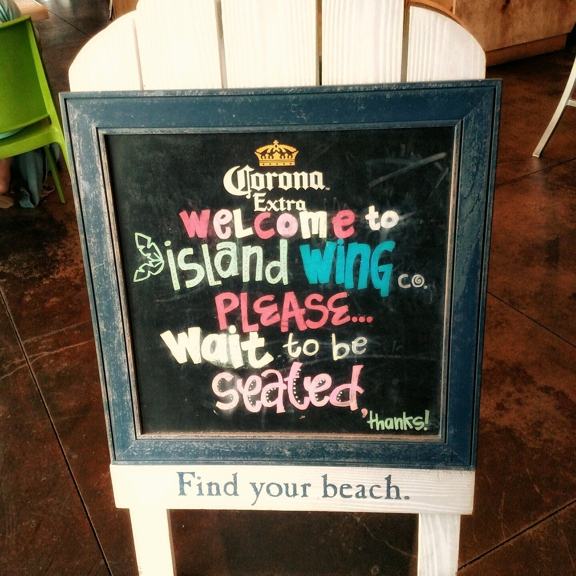 Corona
Extra
WELCOME to
island WiNG co.
PLEASE...
Wait to be
Seated,
thanks!
Find your beach.